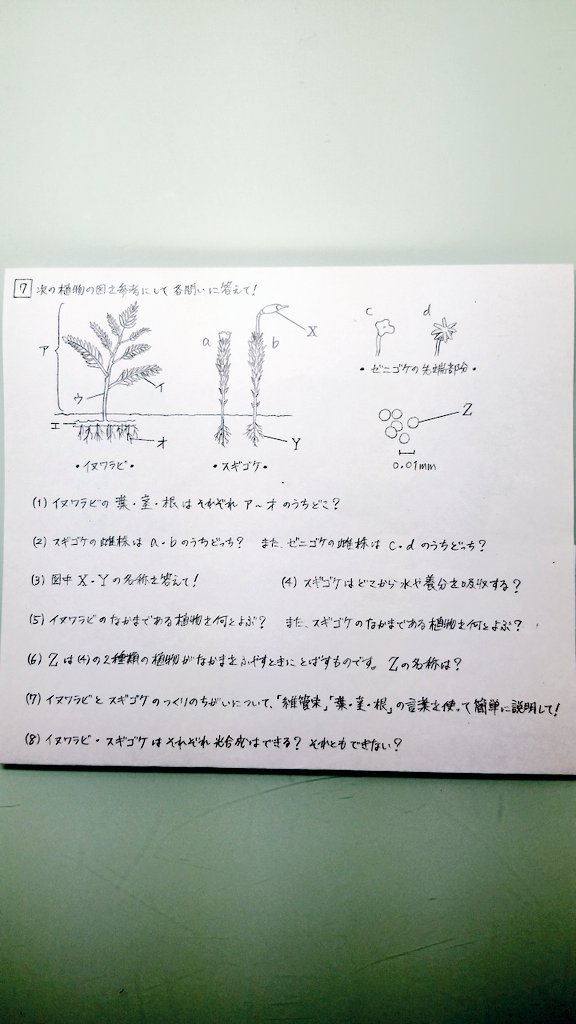 7 次の植物の図を参考にして各問いに答えて！
ア
イ
ウ
エ
オ
・イヌワラビ・
a
b
X
Y
・スギゴケ・
c
d
・ゼニゴケの先端部分・
Z
0.01mm
(1) イヌワラビの 葉・茎・根 は それぞれ ア～オ のうちどこ？
(2) スギゴケの雌株は a・bのうちどっち？ また、ゼニゴケの雌株は c・d のうちどっち？
(3) 図中 X・Yの名称を答えて！ (4) スギゴケはどこから水や養分を吸収する？
(5) イヌワラビのなかまである植物を何とよぶ？ また、スギゴケのなかまである植物を何とよぶ？
(6) Zは(4)の2種類の植物がなかまをふやすときにとばすものです。Zの名称は？
(7) イヌワラビとスギゴケのつくりのちがいについて、「維管束」「葉・茎・根」の言葉を使って簡単に説明して！
(8) イヌワラビ・スギゴケはそれぞれ光合成はできる？ それともできない？